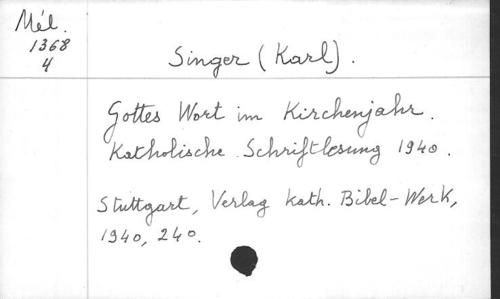 Mél.
1368
4
Singer (Karl).
Gottes Wort im Kirchenjahr.
Katholische Schriftlesung 1940.
Stuttgart, Verlag kath. Bibel-Werk,
1940, 240.